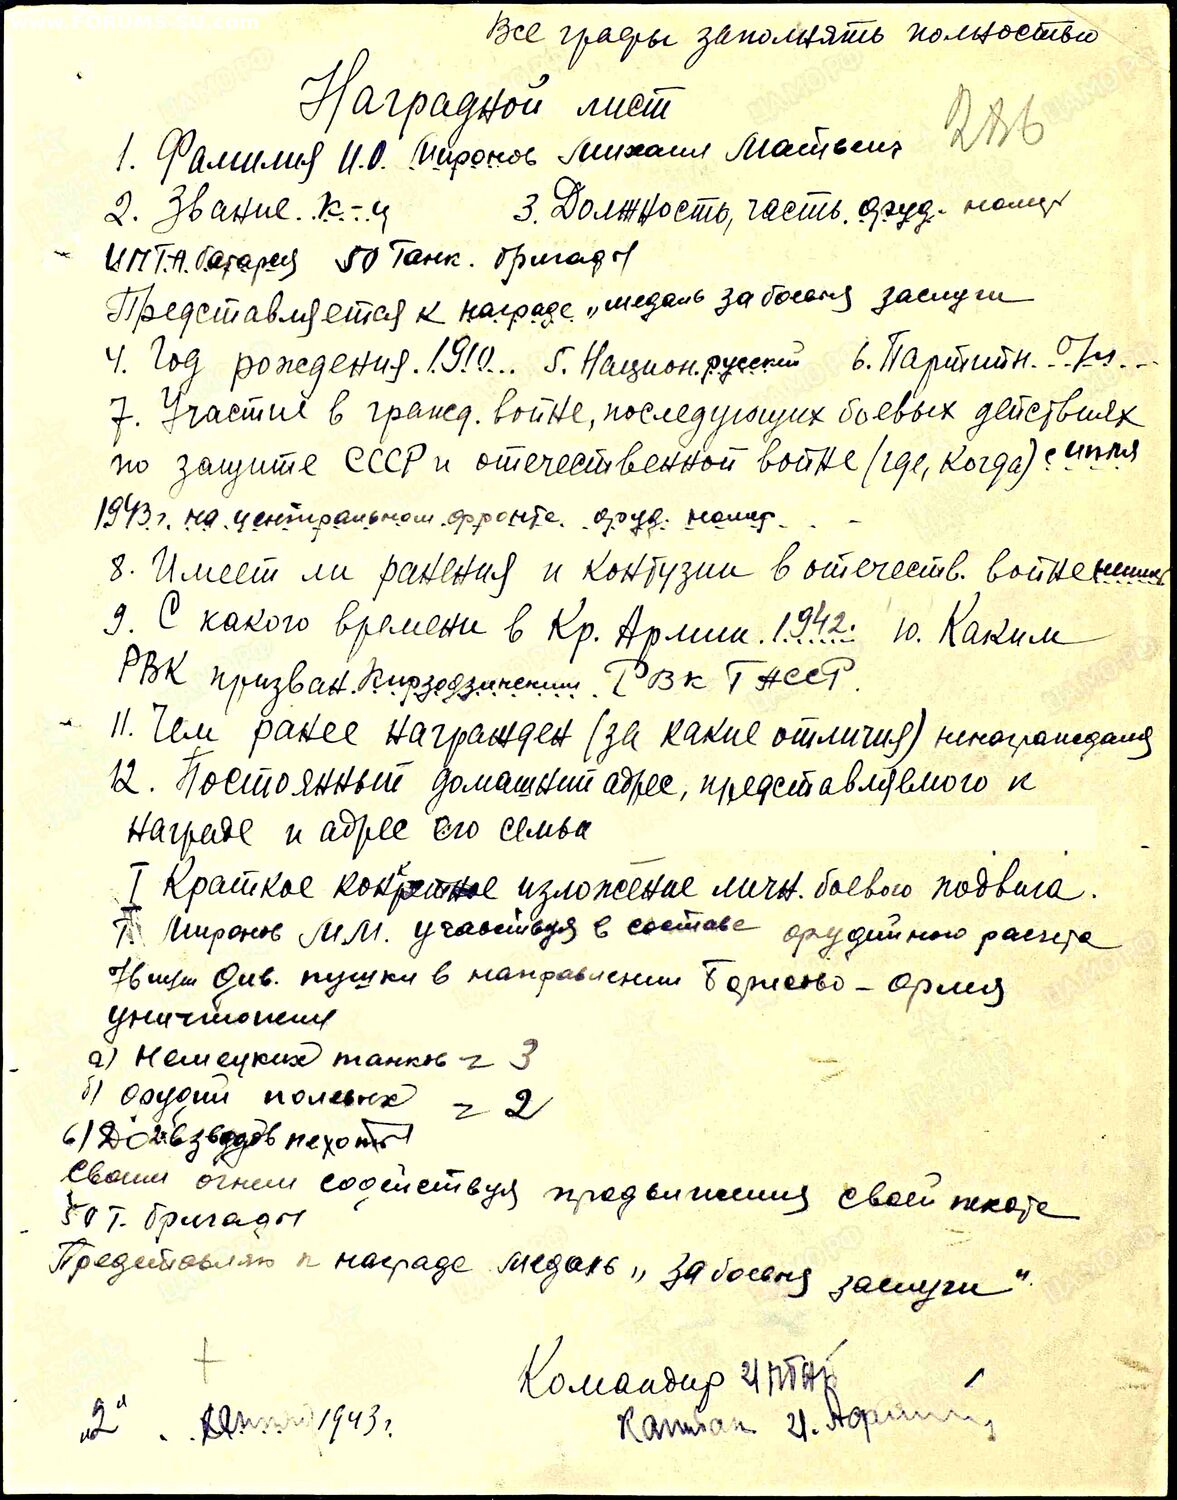 www.FORUMS-SU.com
Все графы заполнять полностью
Наградной лист
1. Фамилия И.О. Миронов Михаил Матвеич
2. Звание. к-ц 3. Должность, часть. оруд. номер
ИПТА батарея 50 Танк. бригады
Представляется к награде „медаль за боевыя заслуги
4. Год рождения. 1910... 5. Национ. русский 6. Партийн. б/п
7. Участие в гражд. войне, последующих боевых действиях
по защите СССР и отечественной войне (где, когда) с июля
1943 г. на центральном фронте оруд. номер
8. Имеет ли ранения и контузии в отечеств. войне
9. С какого времени в Кр. Армии. 1942. 10. Каким
РВК призван. РВК
11. Чем ранее награжден (за какие отличия)
12. Постоянный домашний адрес, представляемого к
награде и адрес его семьи
I Краткое конкретное изложение личн. боевого подвига.
Т. Миронов М.М. участвуя в составе орудийного расчета
76 м/м див. пушки в направлении
уничтожил
а) Немецких танков = 3
б) Орудий полевых = 2
в) До 2 взводов пехоты
Своим огнем содействуя продвижения своей пехоте
50 т. бригады
Представляю к награде медаль „за боевыя заслуги"
Командир ИПТАБ
Капитан
„2" 1943 г.